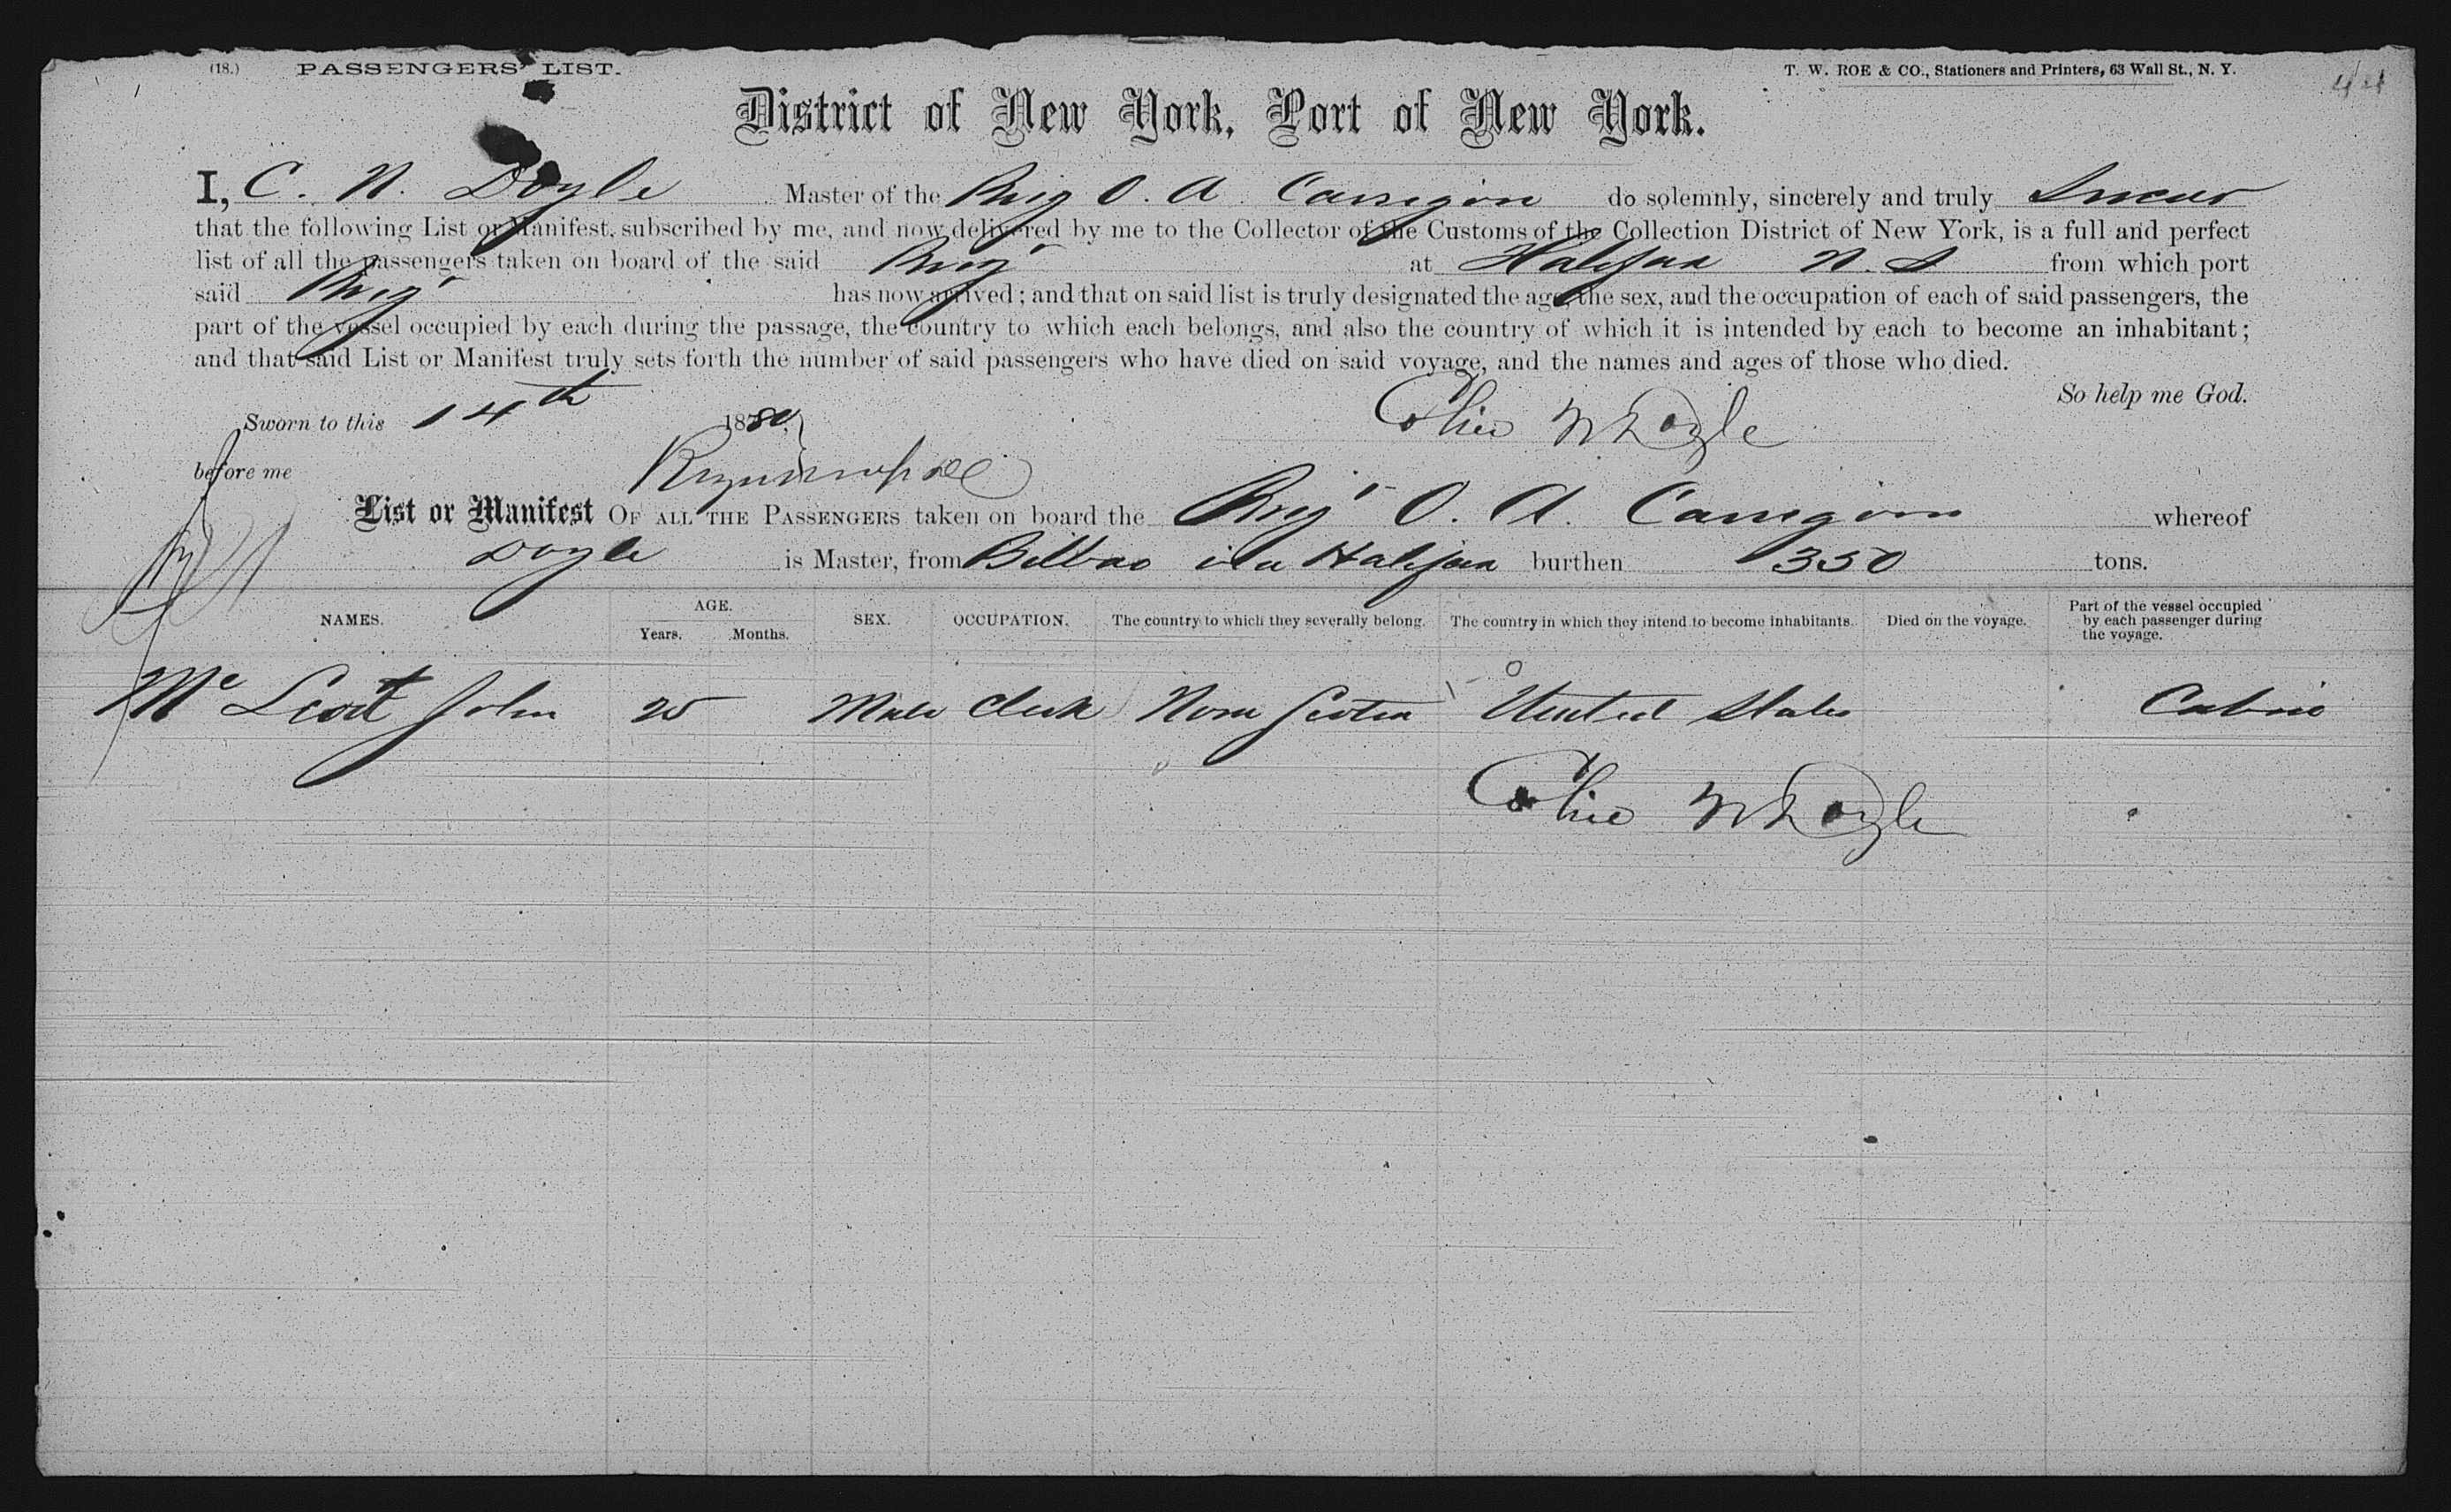 (18.) PASSENGERS' LIST. T. W. ROE & CO., Stationers and Printers, 63 Wall St., N. Y. 44
District of New York, Port of New York.
I, C. N. Doyle Master of the Brig O. A. Carrigan do solemnly, sincerely and truly Swear
that the following List or Manifest, subscribed by me, and now delivered by me to the Collector of the Customs of the Collection District of New York, is a full and perfect
list of all the passengers taken on board of the said Brig at Halifax N. S from which port
said Brig has now arrived; and that on said list is truly designated the age, the sex, and the occupation of each of said passengers, the
part of the vessel occupied by each during the passage, the country to which each belongs, and also the country of which it is intended by each to become an inhabitant;
and that said List or Manifest truly sets forth the number of said passengers who have died on said voyage, and the names and ages of those who died.
So help me God.
Sworn to this 14th 1880, Colin N Doyle
before me
List or Manifest OF ALL THE PASSENGERS taken on board the Brig O. A. Carrigan whereof
Doyle is Master, from Bilbao via Halifax burthen 350 tons.
NAMES. AGE. Years. Months. SEX. OCCUPATION. The country to which they severally belong. The country in which they intend to become inhabitants. Died on the voyage. Part of the vessel occupied by each passenger during the voyage.
Mc John 25 Male Clerk Nova Scotia United States Cabin
Colin N Doyle